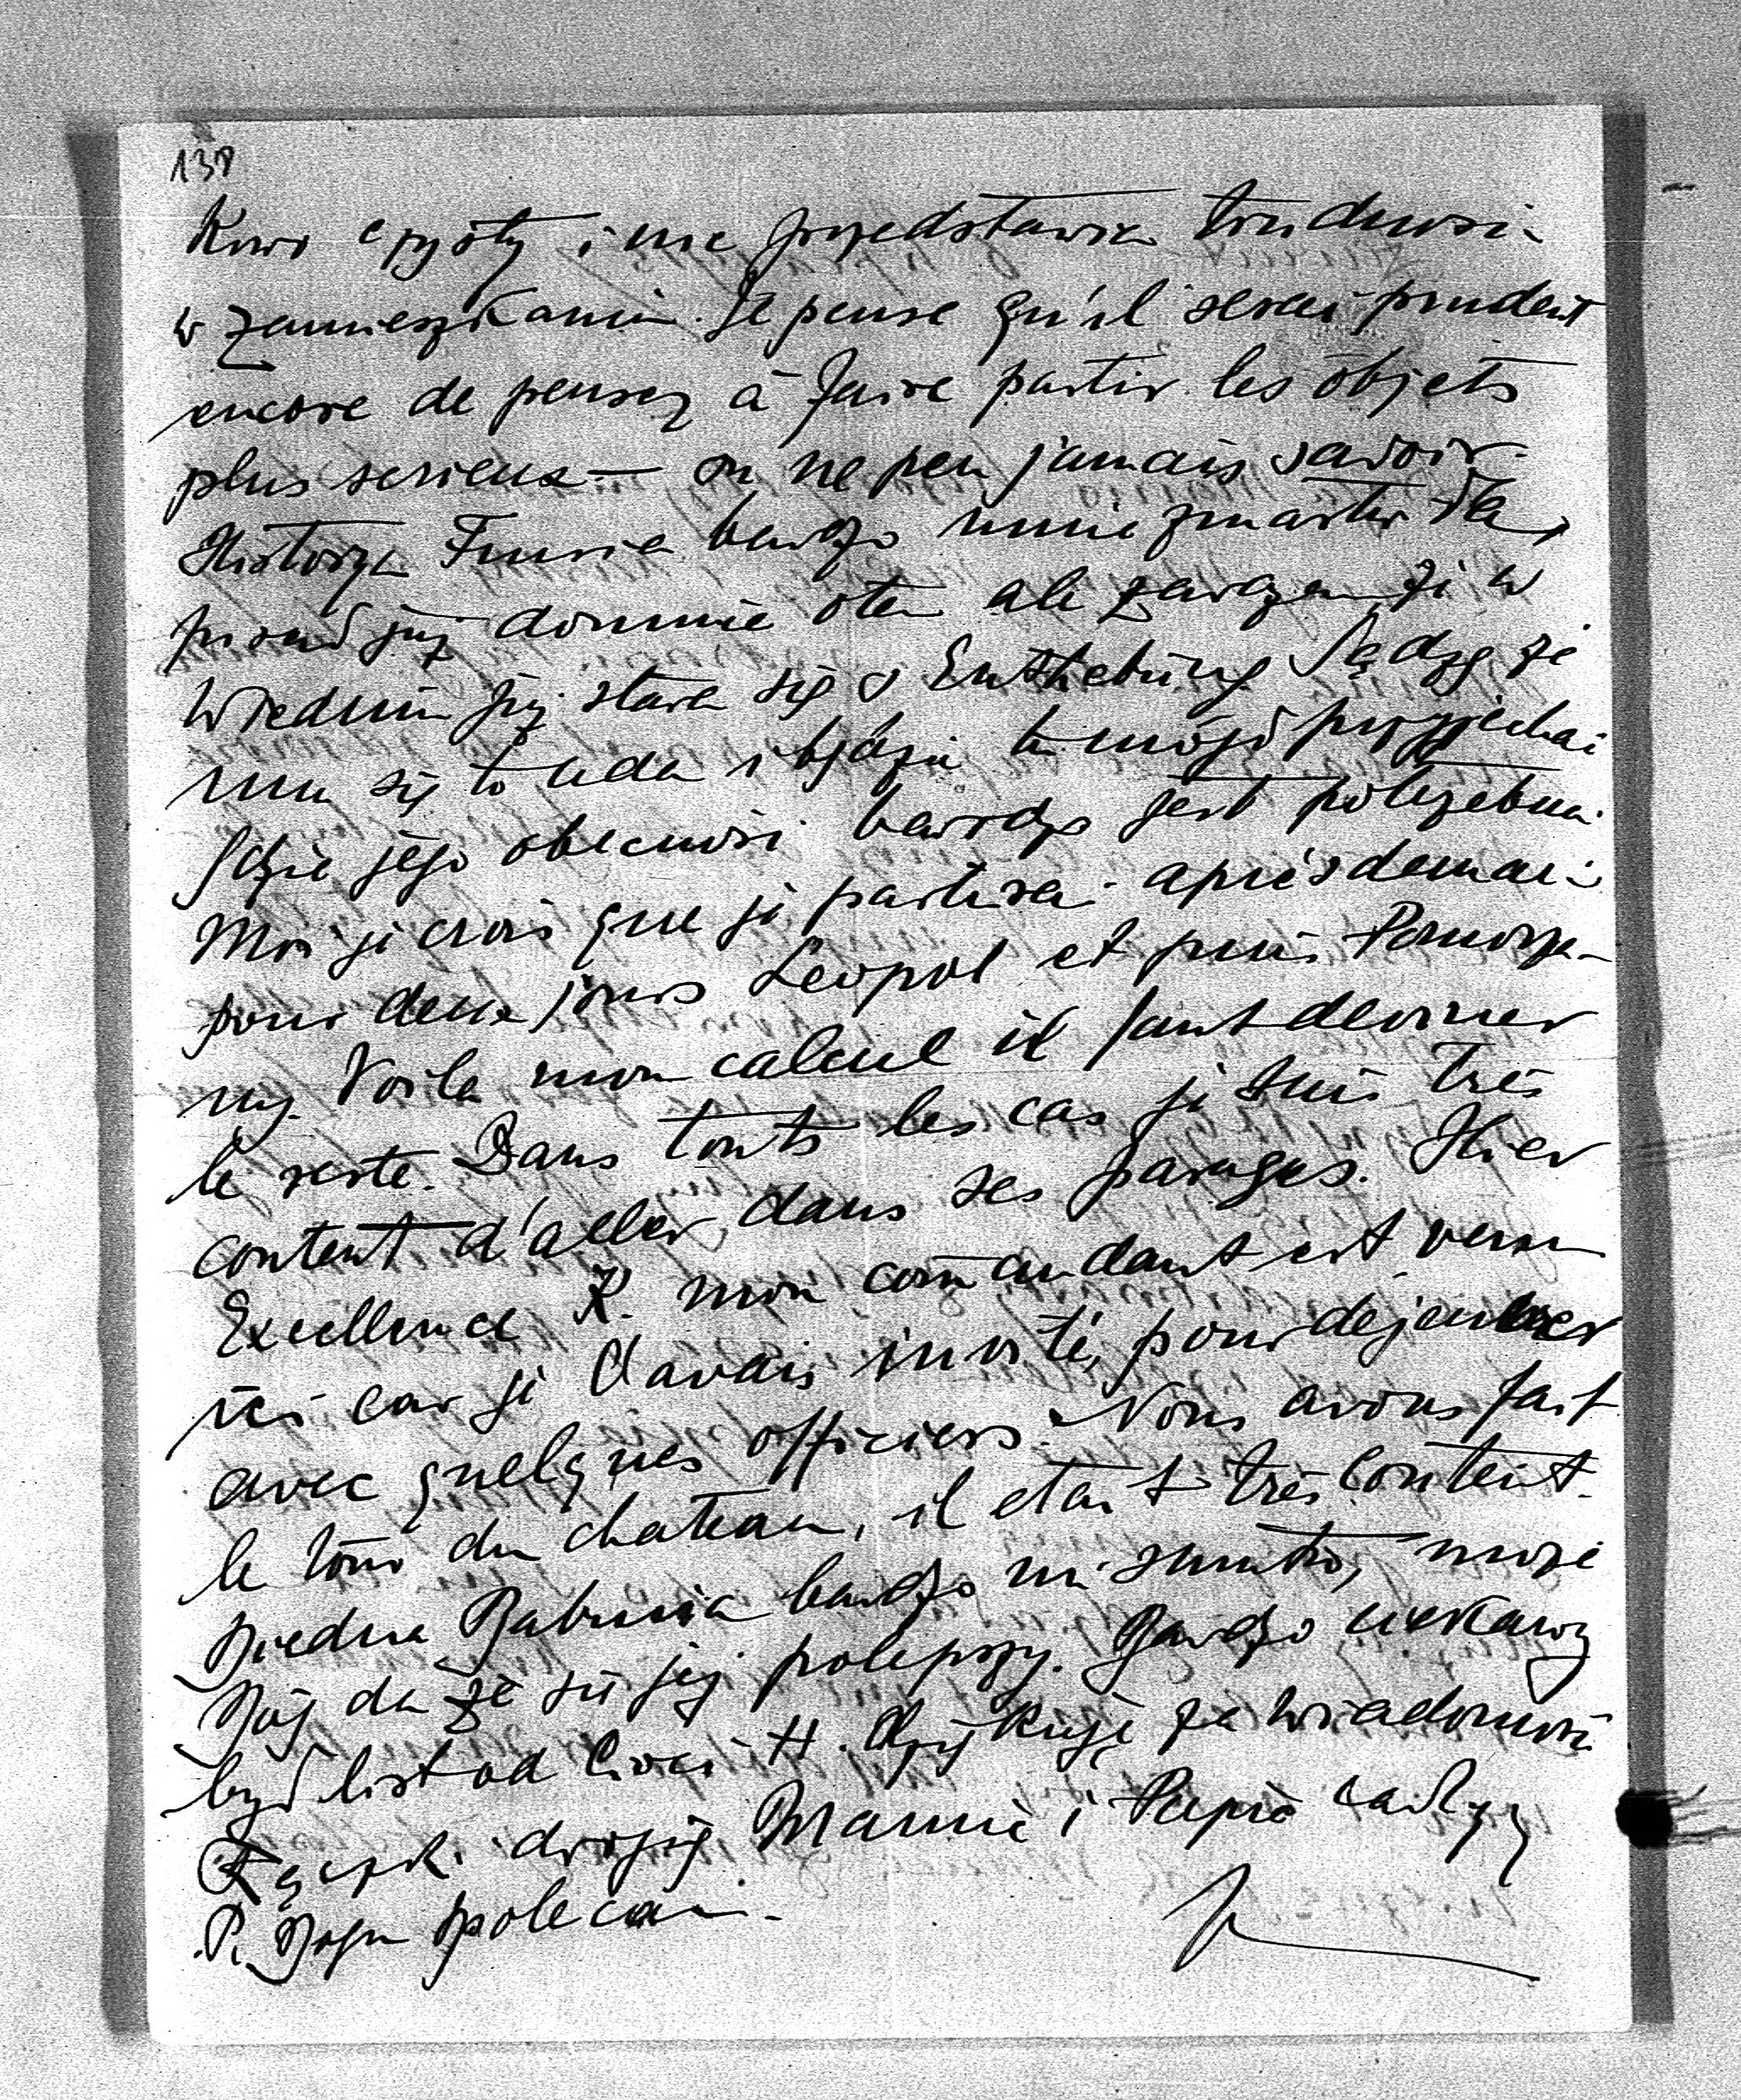 138
Kowo czysty i nie przedstawia trudności
w zamieszkaniu. Je pense qu'il serai prudent
encore de pensez à faire partir les objets
plus serieux — on ne peu jamais savoir.
Historya Frusia bardzo mnie zmartwiła,
pisał już do mnie o tem ale zarazem że w
Wiedniu już stara się o Enthebung Sądzę że
mu się to uda i będzie tu mógł przyjechać
gdzie jego obecność bardzo jest potrzebna.
Moi je crois que je partirai après demain
pour deux jours Leopol et puis Pomorza-
ny. Voila mon calcul il faut deviner
le reste. Dans touts les cas je suis très
content d'aller dans ses parages. Hier
Excellence K. mon comandant est venu
ici car je l'avais invité, pour dejeuner
avec quelques officiers. Nous avons fait
le tour du chateau, il etait très content.
Biedna Babunia bardzo mi smutno, może
Bóg da że się jej polepszy. Bardzo ciekawy
był list od Cioci H. dziękuję za wiadomość
Rączki drogiej Mamie i Papie całuję
P. Bogu polecam.